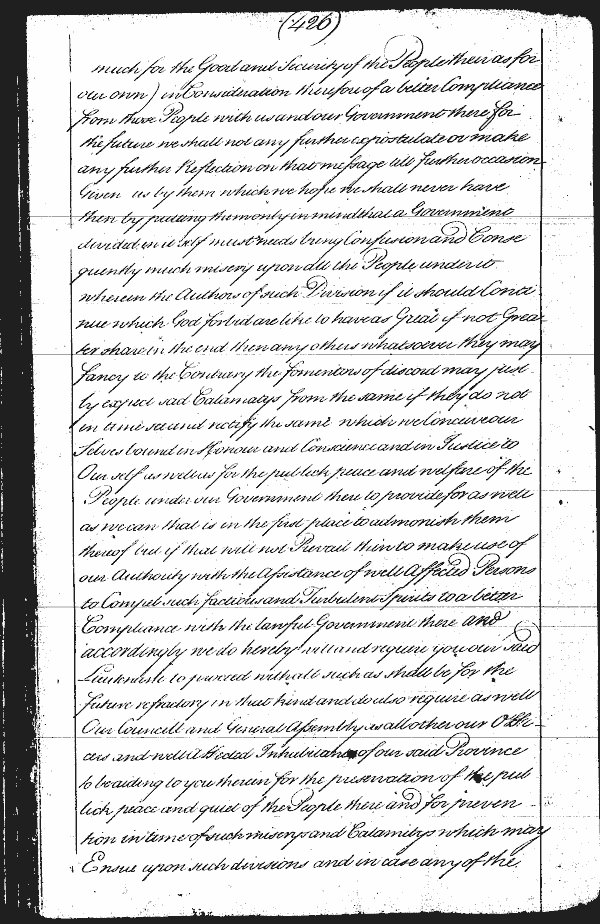 (426)
much for the Good and Security of the People there as for
our own) in Consideration therefore of a better Compliance
from those People with us and our Government there for
the future we shall not any further expostulate or make
any further Reflection on that message till further occasion
Given us by them which we hope we shall never have
then by putting them only in mind that a Government
divided in it self must needs bring Confusion and Conse
quently much misery upon all the People under it
wherein the Authors of such Division if it should Conti
nue which God forbid are like to have as Great if not Grea
ter share in the end then any others whatsoever they may
fancy to the Contrary the fomentors of discord may just
ly expect sad Calamitys from the same if they do not
in time see and rectify the same which we Conceive our
Selves bound in Honour and Conscience and in Justice to
Our self as well as for the publick peace and welfare of the
People under our Government there to provide for as well
as we can that is in the first place to admonish them
thereof but if that will not Prevail then to make use of
our Authority with the Assistance of well Affected Persons
to Compel such factious and Turbulent Spirits to a better
Compliance with the lawful Government there and
accordingly we do hereby will and require you our said
to proceed with all such as shall be for the
future refractory in that kind and do also require as well
Our Councill and General Assembly as all other our Offi
cers and well Affected Inhabitants of our said Province
to be aiding to you therein for the preservation of the pub
lick peace and quiet of the People there and for preven
tion in time of such miserys and Calamitys which may
Ensue upon such divisions and in case any of the